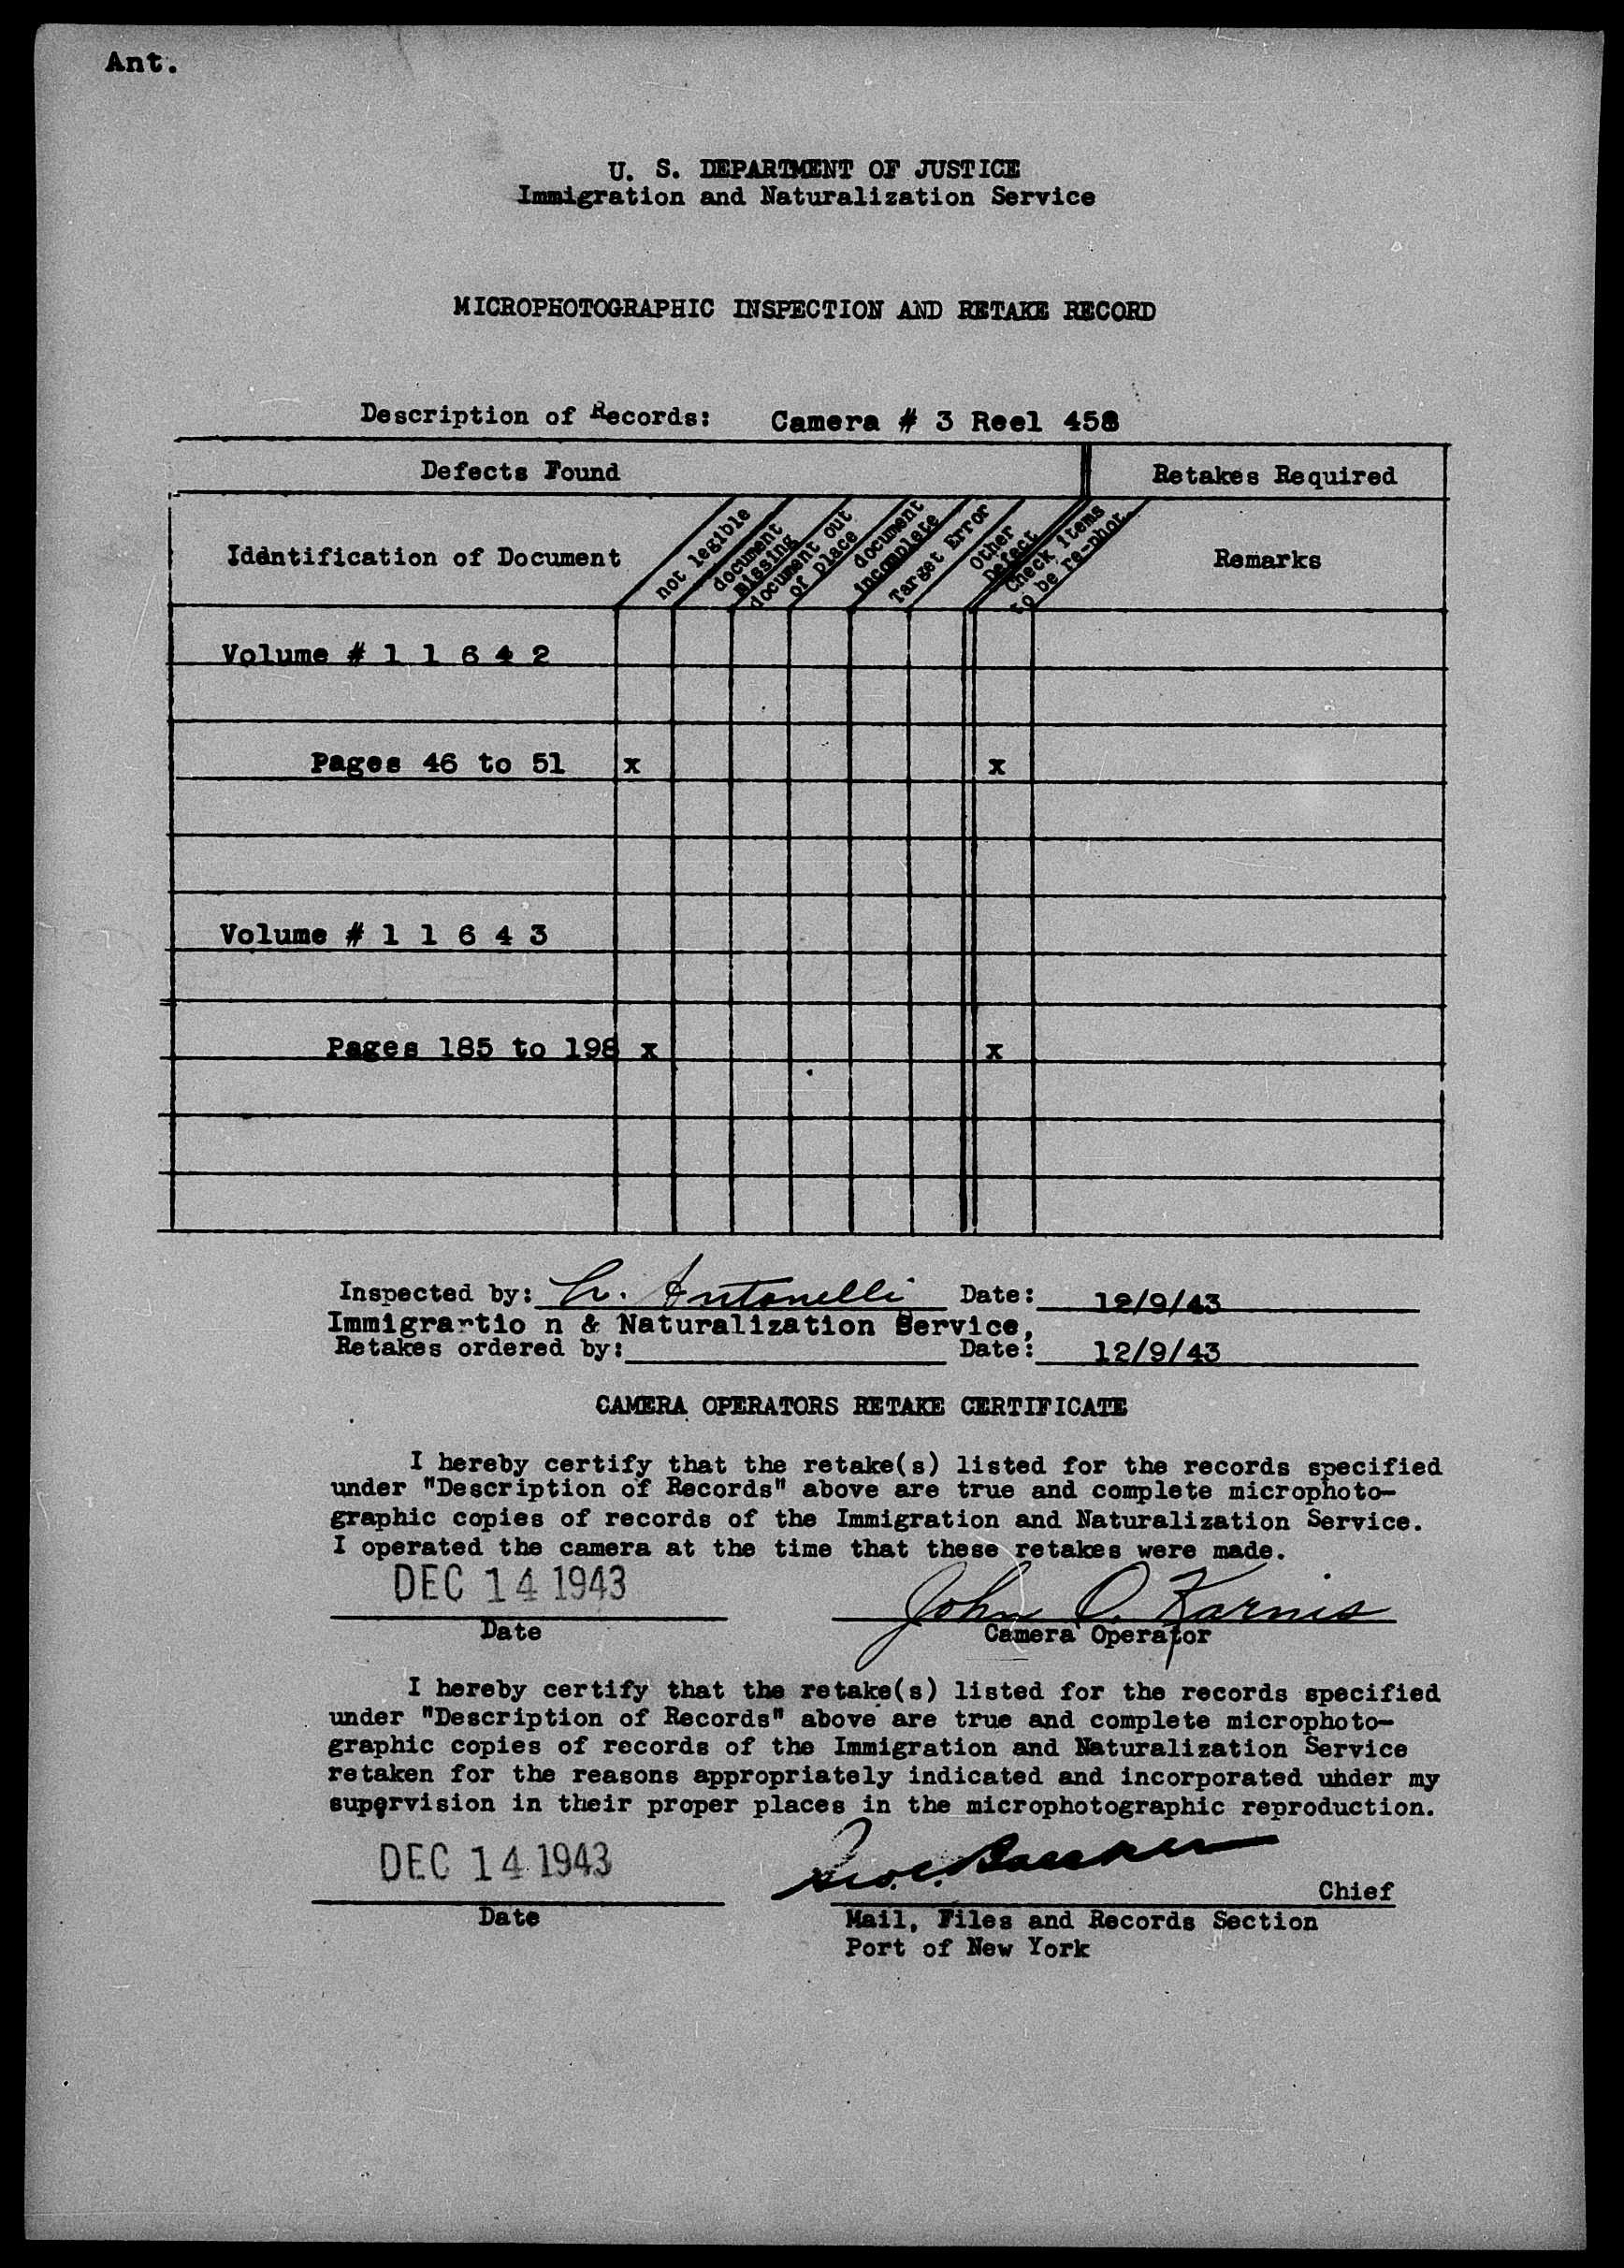 Ant.
U. S. DEPARTMENT OF JUSTICE
Immigration and Naturalization Service
MICROPHOTOGRAPHIC INSPECTION AND RETAKE RECORD
Description of Records: Camera # 3 Reel 458
Defects Found Retakes Required
Identification of Document
not legible
document
missing
document out
of place
document
incomplete
Target Error
Other
Defect
Check items
to be re-phot.
Remarks
Volume # 1 1 6 4 2
Pages 46 to 51 x x
Volume # 1 1 6 4 3
Pages 185 to 198 x x
Inspected by: Antonelli Date: 12/9/43
Immigrartio n & Naturalization Service,
Retakes ordered by: Date: 12/9/43
CAMERA OPERATORS RETAKE CERTIFICATE
I hereby certify that the retake(s) listed for the records specified
under "Description of Records" above are true and complete microphoto-
graphic copies of records of the Immigration and Naturalization Service.
I operated the camera at the time that these retakes were made.
DEC 14 1943 John O. Karnis
Date Camera Operator
I hereby certify that the retake(s) listed for the records specified
under "Description of Records" above are true and complete microphoto-
graphic copies of records of the Immigration and Naturalization Service
retaken for the reasons appropriately indicated and incorporated under my
supervision in their proper places in the microphotographic reproduction.
DEC 14 1943
Chief
Date Mail, Files and Records Section
Port of New York